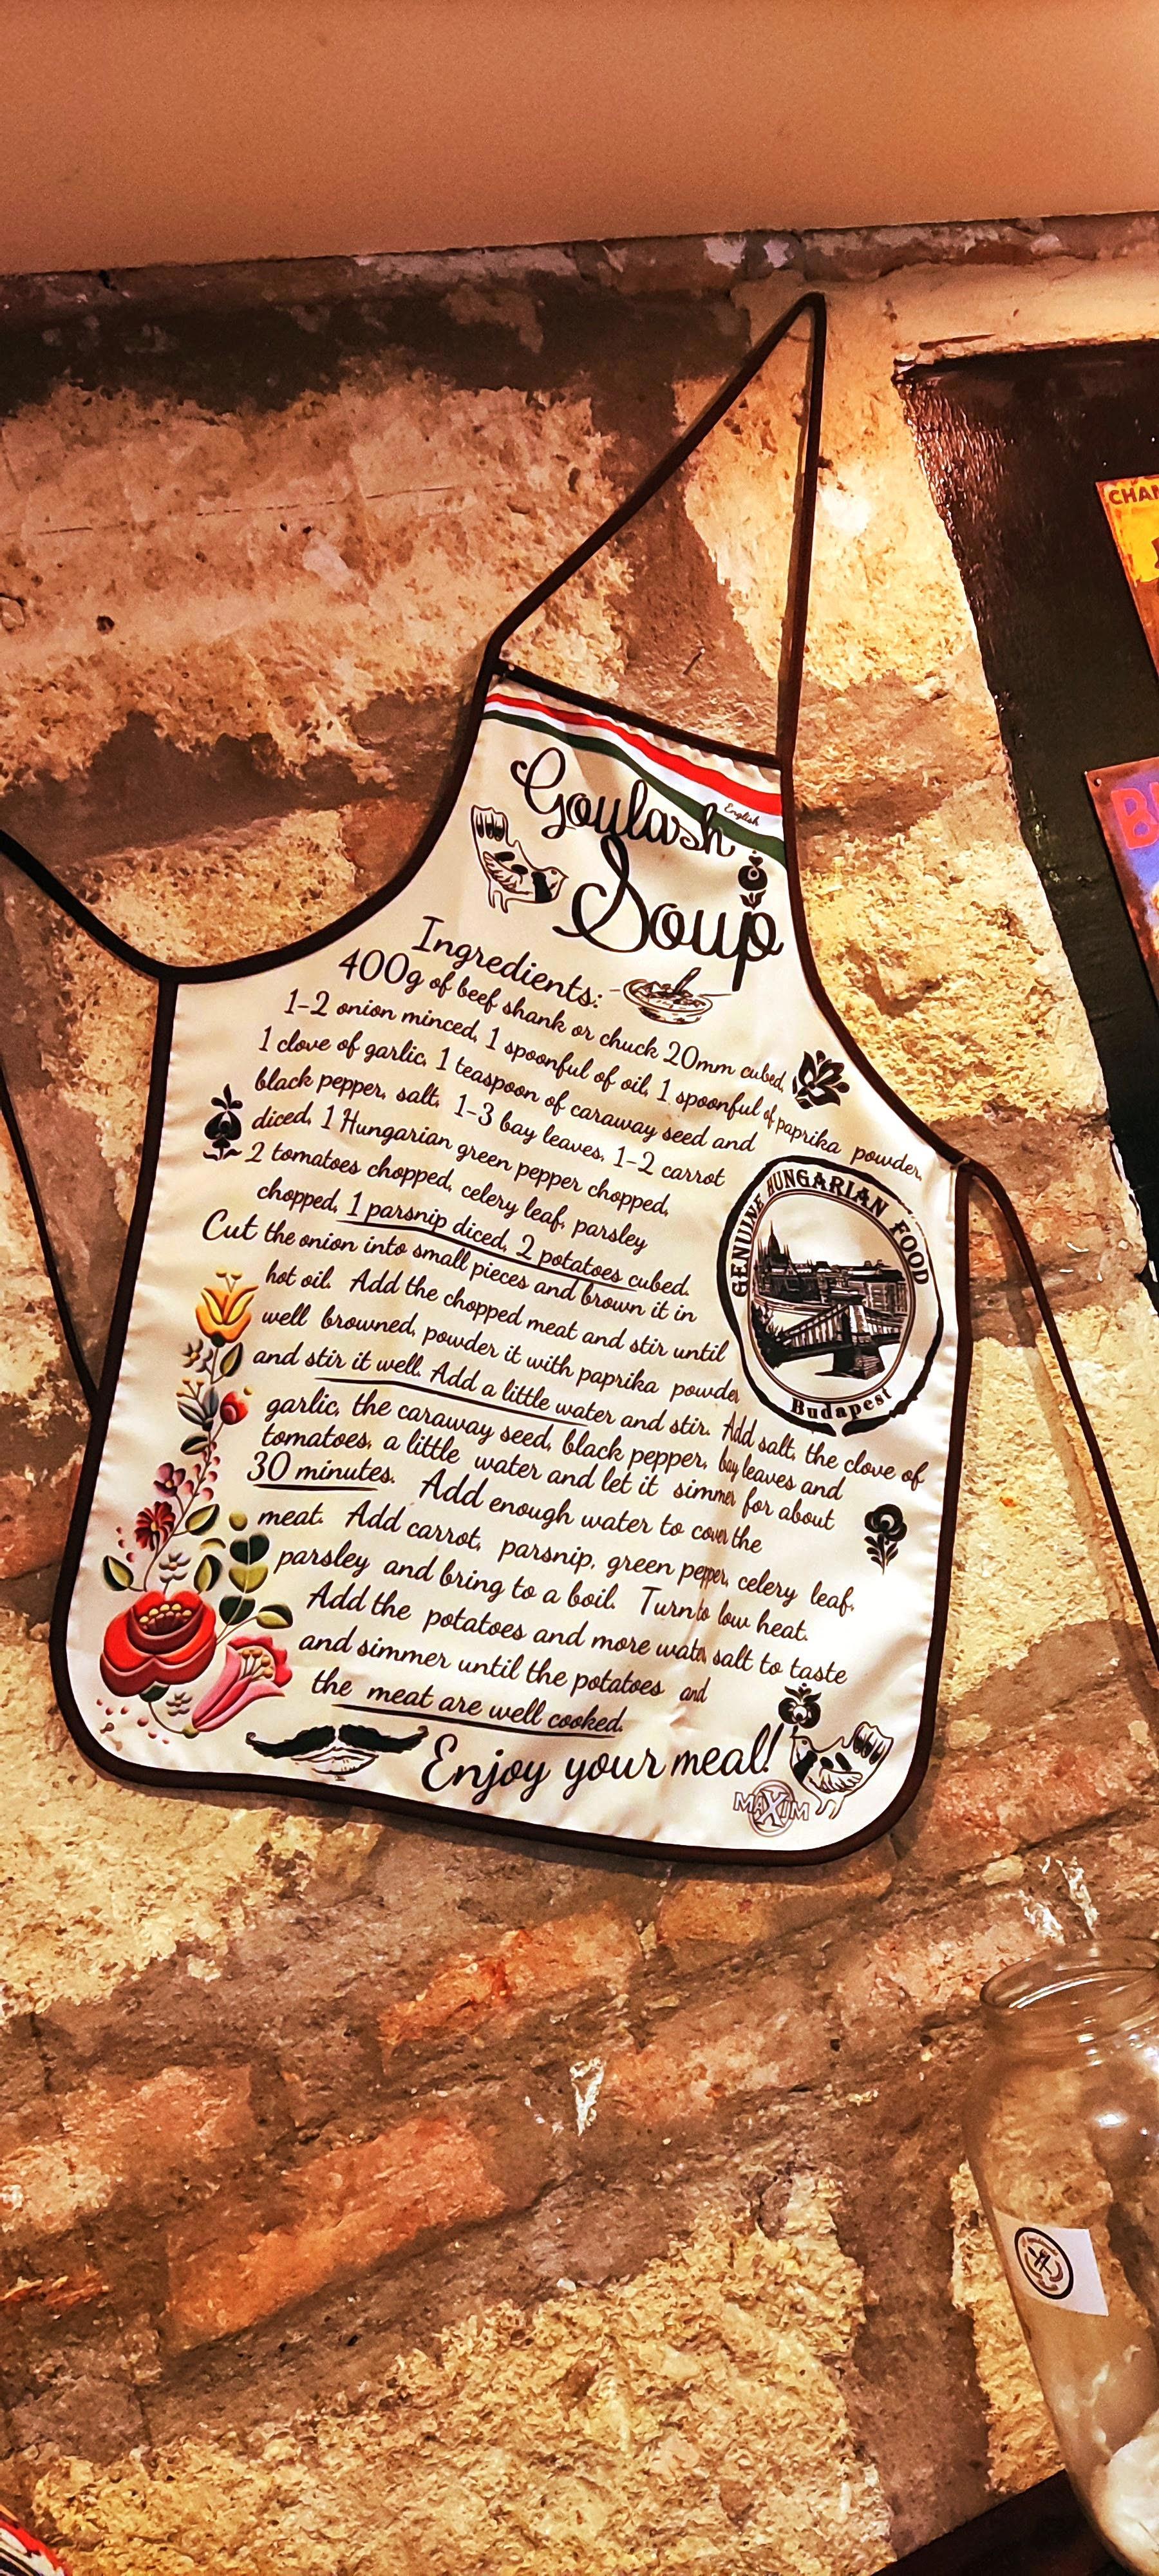 English
Goulash
Soup
Ingredients:
400g of beef shank or chuck 20mm cubed,
1-2 onion minced, 1 spoonful of oil, 1 spoonful of paprika powder,
1 clove of garlic, 1 teaspoon of caraway seed and
black pepper, salt, 1-3 bay leaves, 1-2 carrot
diced, 1 Hungarian green pepper chopped,
2 tomatoes chopped, celery leaf, parsley
chopped, 1 parsnip diced, 2 potatoes cubed.
Cut the onion into small pieces and brown it in
hot oil. Add the chopped meat and stir until
well browned, powder it with paprika powder
and stir it well. Add a little water and stir. Add salt, the clove of
garlic, the caraway seed, black pepper, bay leaves and
tomatoes, a little water and let it simmer for about
30 minutes. Add enough water to cover the
meat. Add carrot, parsnip, green pepper, celery leaf,
parsley and bring to a boil. Turn to low heat.
Add the potatoes and more water, salt to taste
and simmer until the potatoes and
the meat are well cooked.
Enjoy your meal!
MAXIM
GENUINE HUNGARIAN FOOD
Budapest
CHAN
B